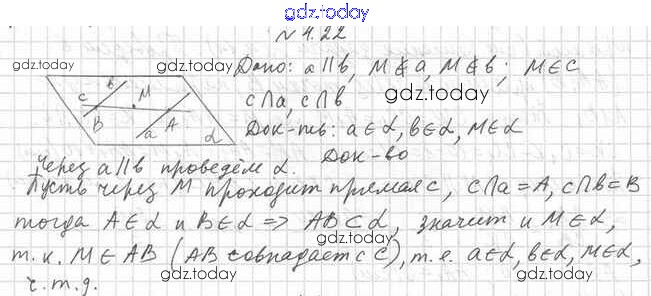 gdz.today
N 4.22
gdz.today gdz.today
Дано: a∥b, M∉a, M∉b; M∈c
c∩a, c∩b
gdz.today
Док-ть: a∈α, b∈α, M∈α
b
c M
B a A α
gdz.today
Док-во
Через a∥b проведём α.
Пусть через M проходит прямая c, c∩a=A, c∩b=B
тогда A∈α и B∈α => AB⊂α, значит и M∈α,
gdz.today
т.к. M∈AB (AB совпадает с c), т.е. a∈α, b∈α, M∈α,
ч.т.д.
gdz.today gdz.today